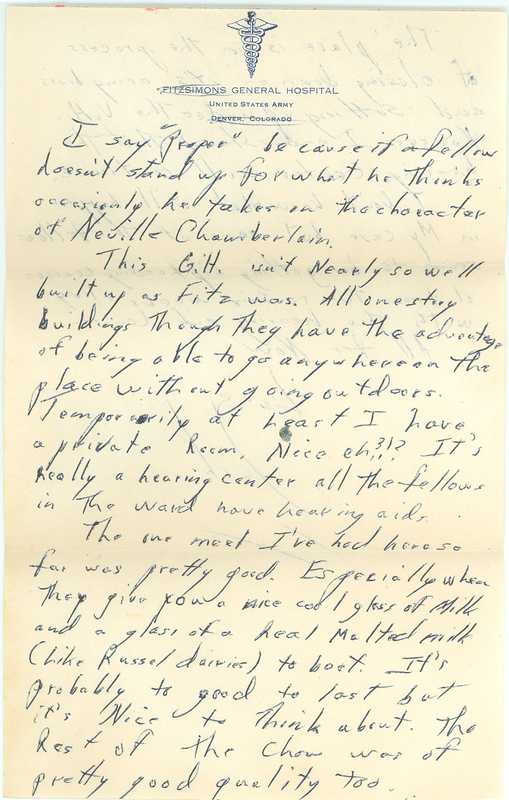 FITZSIMONS GENERAL HOSPITAL
UNITED STATES ARMY
DENVER, COLORADO
I say "Proper" because if a fellow
doesn't stand up for what he thinks
occasionly he takes on the character
of Neville Chamberlain.
This G.H. isn't Nearly so well
built up as Fitz was. All one story
buildings though they have the advantage
of being able to go anywhere on the
place without going outdoors.
Temporarily at least I have
a private Room, Nice eh?!? It's
Really a hearing center all the fellows
in the ward have hearing aids.
The one meal I've had here so
far was pretty good. Especially when
they give you a nice cool glass of Milk
and a glass of a Real Malted milk
(Like Russel dairies) to boot. It's
probably to good to last but
it's Nice to think about. The
Rest of the Chow was of
pretty good quality too.